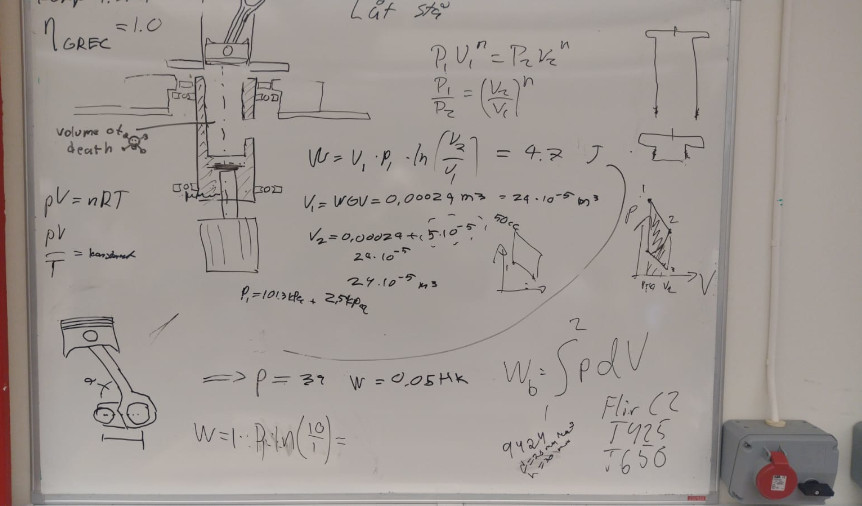 η GREC = 1.0
Låt stå
P₁ V₁ⁿ = P₂ V₂ⁿ
P₁/P₂ = (V₂/V₁)ⁿ
volume of
death
W = V₁ · P₁ · ln(V₂/V₁) = 4.7 J
pV = nRT
pV/T = konstant
V₁ = WGV = 0,00024 m³ = 24·10⁻⁵ m³
V₂ = 0,00024 + 5·10⁻⁵
50cc
24·10⁻⁵
24·10⁻⁵ m³
P₁ = 101.3 kPa + 2,5 kPa
1
2
P
V₂
V
=> P = 39 W = 0,05 HK
W_b = ∫₁² p dV
W = 1 · P₁ · ln(10/1) =
9424
Flir C2
T425
T650